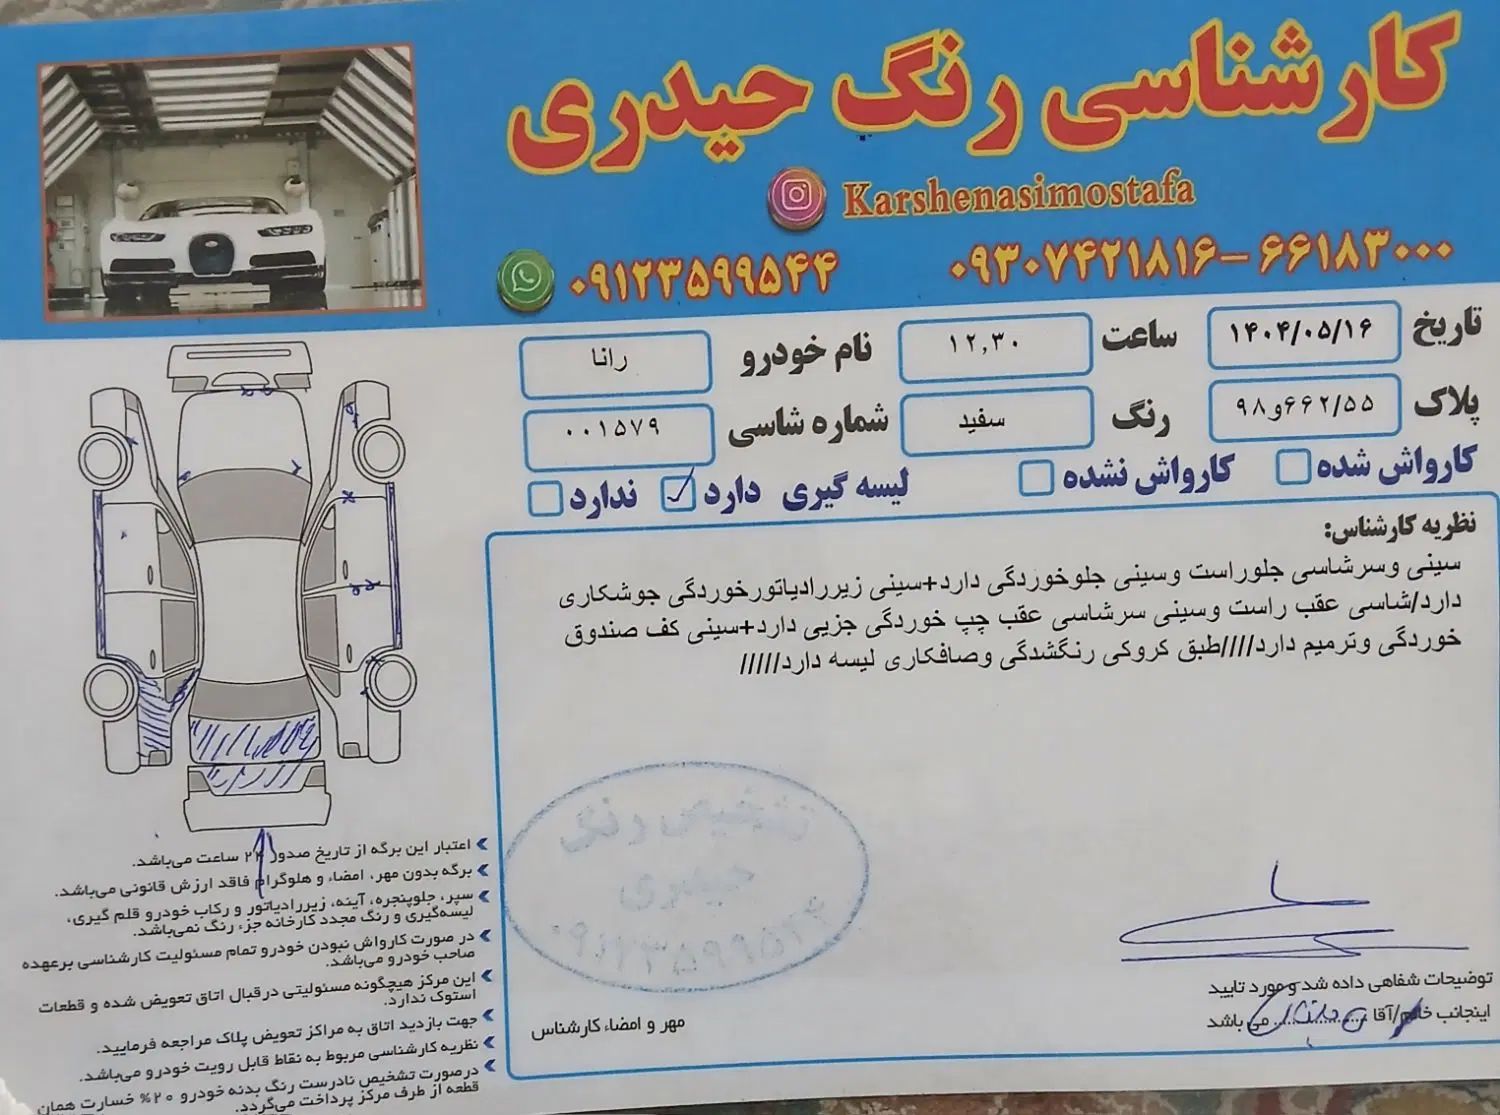 کارشناسی رنگ حیدری
Karshenasimostafa
۰۹۳۰۷۴۲۱۸۱۶-۶۶۱۸۳۰۰۰
۰۹۱۲۳۵۹۹۵۴۴
تاریخ ۱۴۰۴/۰۵/۱۶ ساعت ۱۲,۳۰ نام خودرو رانا
پلاک ۹۸و۶۶۲/۵۵ رنگ سفید شماره شاسی ۰۰۱۵۷۹
کارواش شده کارواش نشده لیسه گیری دارد ندارد
نظریه کارشناس:
سینی وسرشاسی جلوراست وسینی جلوخوردگی دارد+سینی زیررادیاتورخوردگی جوشکاری
دارد/شاسی عقب راست وسینی سرشاسی عقب چپ خوردگی جزیی دارد+سینی کف صندوق
خوردگی وترمیم دارد////طبق کروکی رنگشدگی وصافکاری لیسه دارد/////
اعتبار این برگه از تاریخ صدور ۲۴ ساعت می‌باشد.
برگه بدون مهر، امضاء و هلوگرام فاقد ارزش قانونی می‌باشد.
سپر، جلوپنجره، آینه، زیررادیاتور و رکاب خودرو قلم گیری،
لیسه‌گیری و رنگ مجدد کارخانه جزء رنگ نمی‌باشد.
در صورت کارواش نبودن خودرو تمام مسئولیت کارشناسی برعهده
صاحب خودرو می‌باشد.
این مرکز هیچگونه مسئولیتی در قبال اتاق تعویض شده و قطعات
استوک ندارد.
جهت بازدید اتاق به مراکز تعویض پلاک مراجعه فرمایید.
نظریه کارشناسی مربوط به نقاط قابل رویت خودرو می‌باشد.
درصورت تشخیص نادرست رنگ بدنه خودرو ۲۰% خسارت همان
قطعه از طرف مرکز پرداخت می‌گردد.
تشخیص رنگ
حیدری
۰۹۱۲۳۵۹۹۵۴۴
مهر و امضاء کارشناس
توضیحات شفاهی داده شد و مورد تایید
اینجانب خانم/آقا می باشد